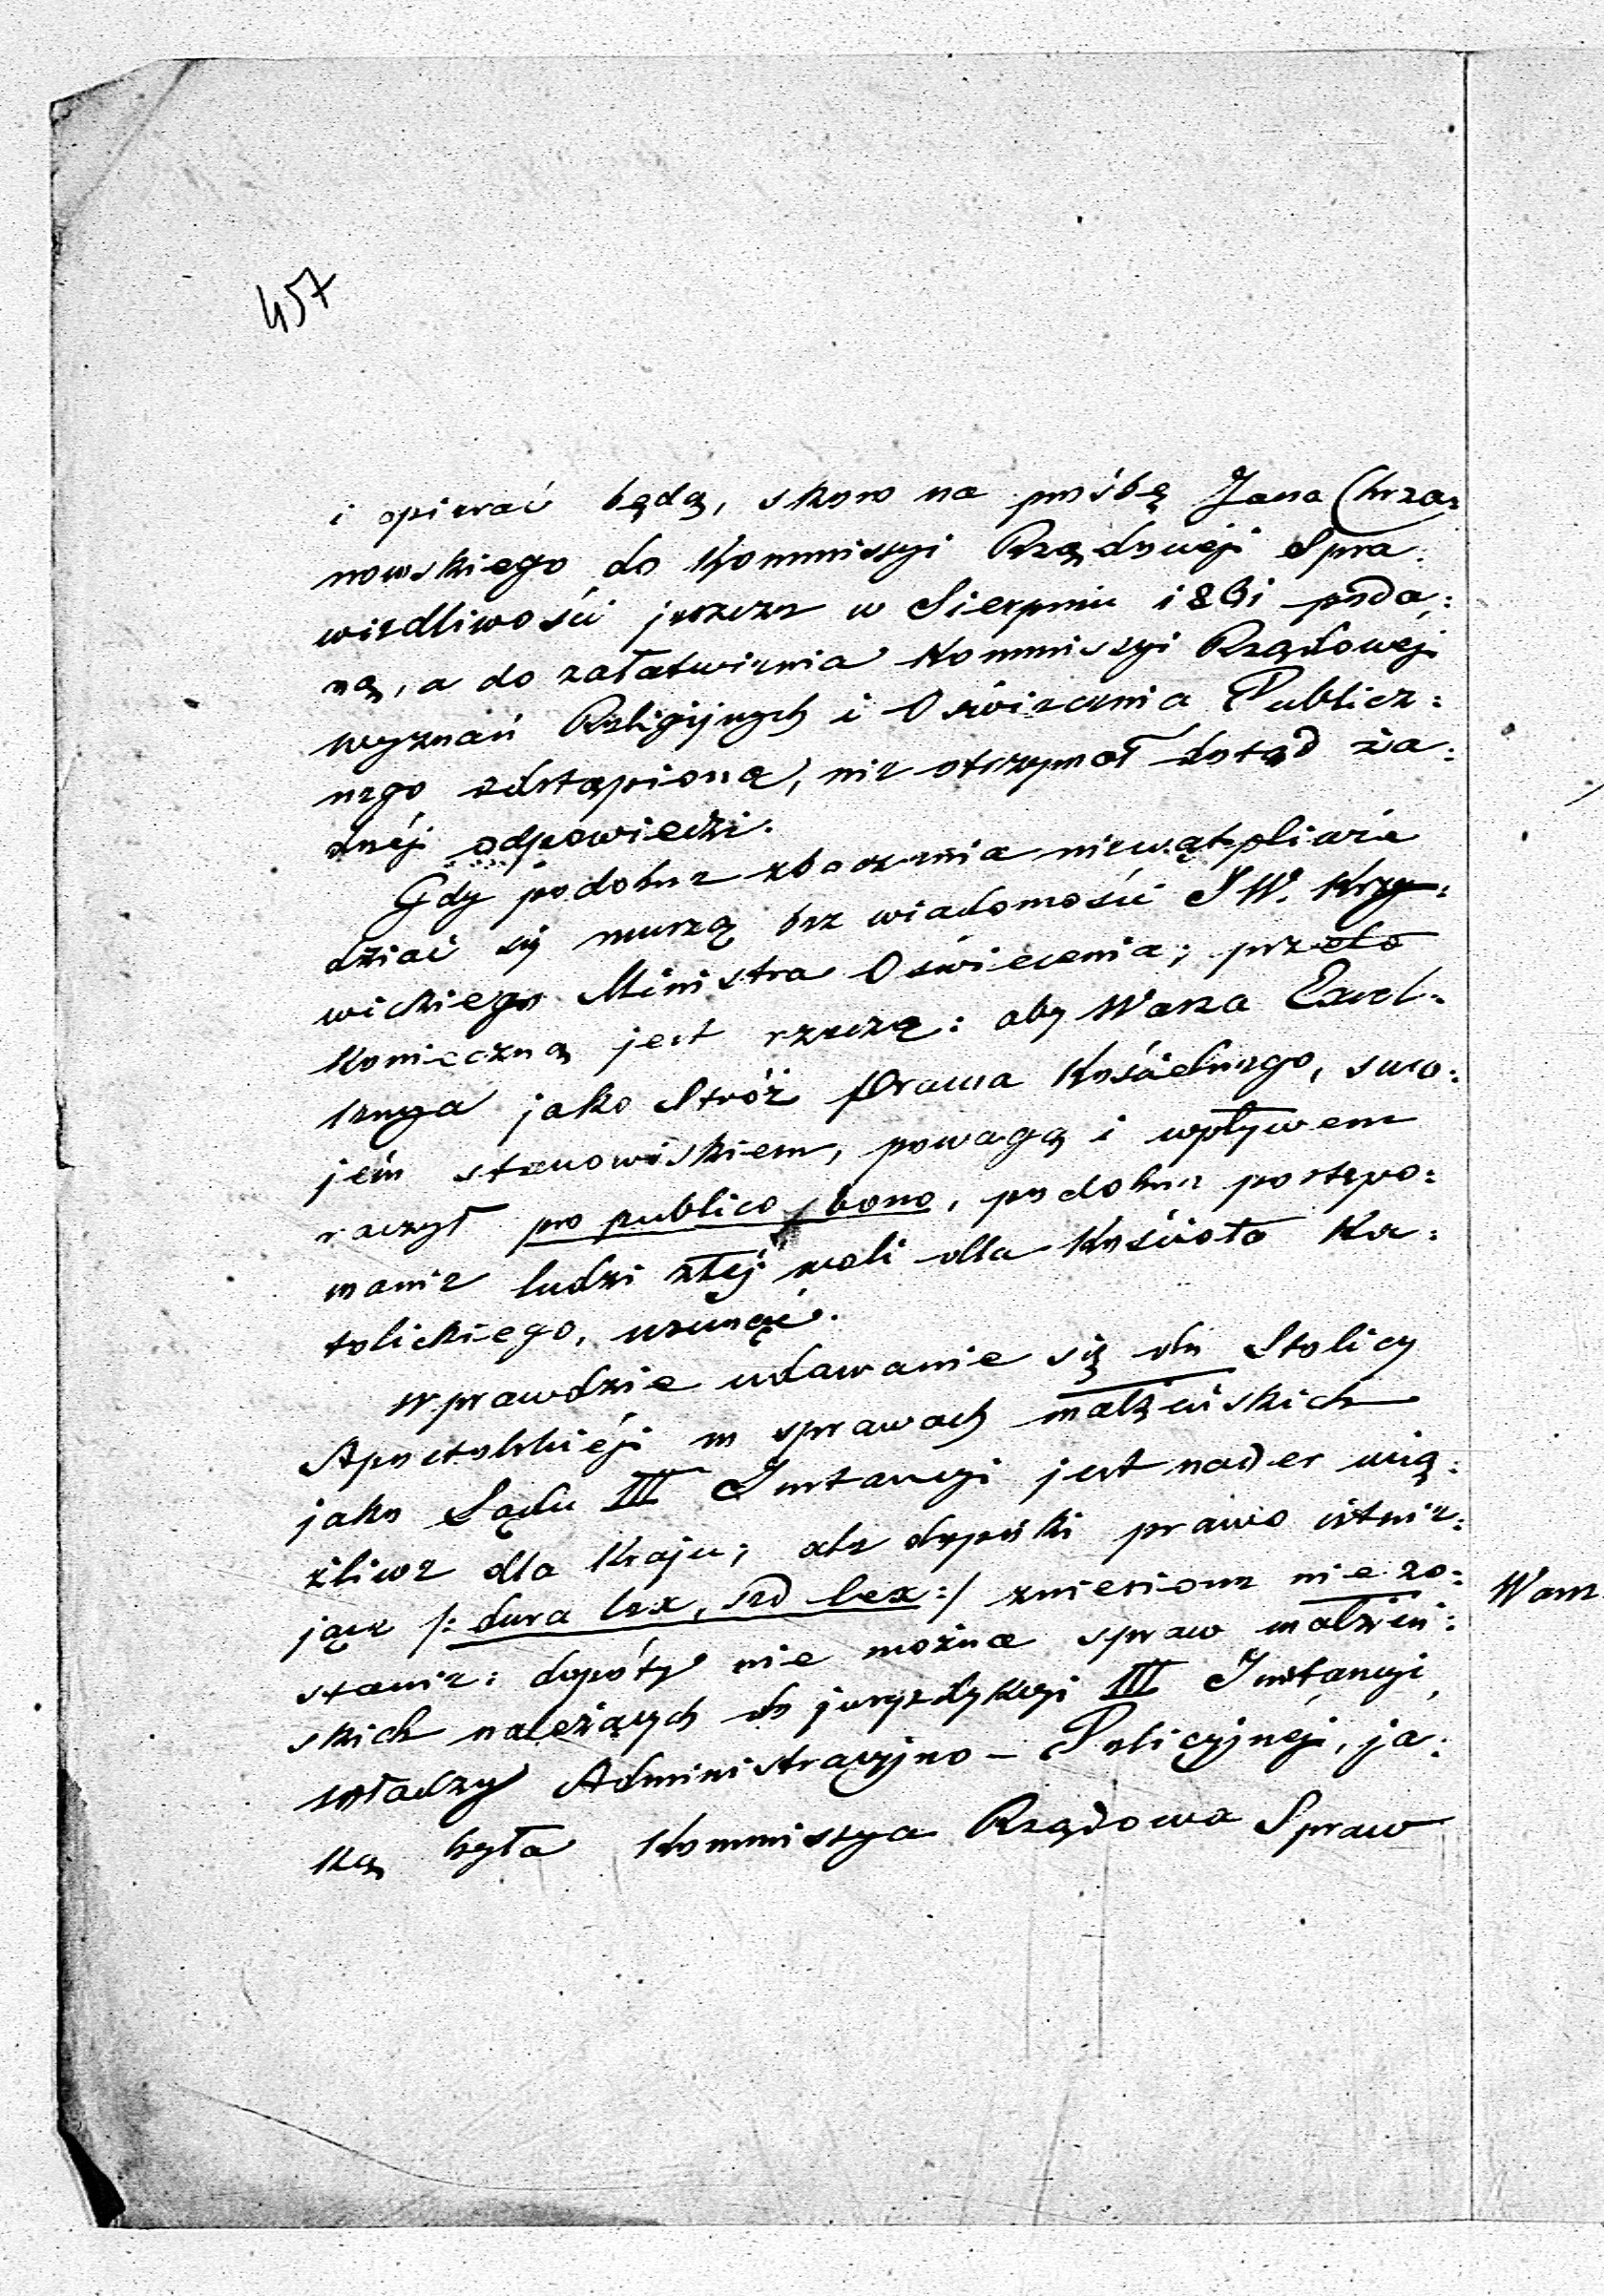 457
i opierać będą, skoro na prośbę Jana Chrza=
nowskiego do Kommissyi Rządowéj Spra=
wiedliwości jeszcze w Sierpniu 1861 poda=
ną, a do załatwienia Kommissyi Rządowéj
wyznań Religijnych i Oświecenia Publicz=
nego odstąpioną, nie otrzymał dotąd ża=
dnéj odpowiedzi.
Gdy podobne zboczenia niewątpliwie
dziać się muszą bez wiadomości JW. Krzy=
wickiego Ministra Oświecenia; przeto
Konieczną jest rzeczą: aby Wasza Excel=
lencya jako Stróż Prawa Kościelnego, swo=
jém stanowiskiem, powagą i wpływem
raczył pro publico bono, podobne postępo=
wanie ludzi złéj woli dla Kościoła Ka=
tolickiego, usunąć.
Wprawdzie udawanie się do Stolicy
Apostolskiéj w sprawach małżeńskich
jako Sądu III Instancyi jest nader ucią=
żliwe dla Kraju; ale dopóki prawo istnie=
jące /: dura lex, sed lex :/ zniesione nie zo=
stanie: dopóty nie można spraw małżeń=
skich należących do juryzdykcyi III Instancyi,
władzy Administracyjno - Policyjnéj, ja=
ką była Kommissya Rządowa Spraw